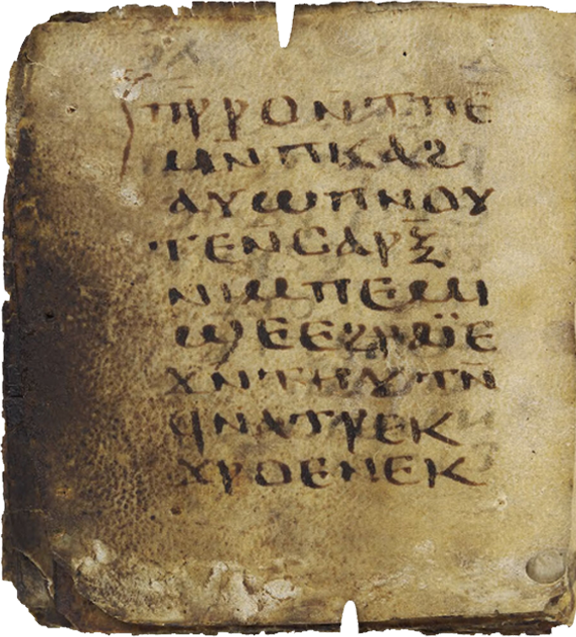 ⲡⲣ̄ⲣⲟⲛ̄ⲧⲡⲉ
ⲙⲛ̄ⲡⲕⲁϩ
ⲁⲩⲱⲡⲛⲟⲩ
ⲧⲉⲛ̄ⲥⲁⲣⲝ̄
ⲛⲓⲙⲡⲉⲙⲓ
ϣⲉⲉϩⲣⲁⲓ̈ⲉ
ϫⲛ̄ⲧⲏⲩⲧⲛ̄
ϥⲛⲁⲧⲣⲉⲕ
ϫⲣⲟⲉⲛⲉⲕ